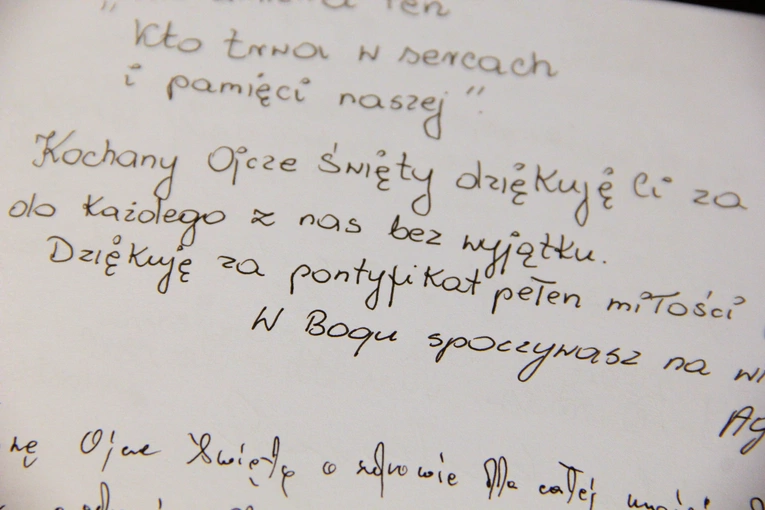 ten
Kto trwa w sercach
i pamięci naszej".
Kochany Ojcze Święty dziękuję Ci za
do każdego z nas bez wyjątku.
Dziękuję za pontyfikat pełen miłości
W Bogu spoczywasz na
Ag
Ojcze Święty o zdrowie dla całej